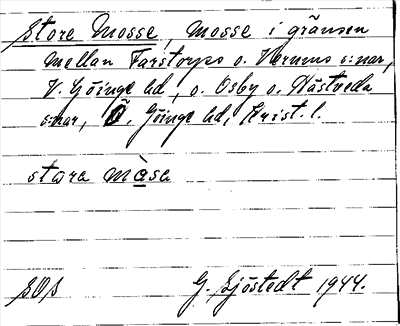 Store Mosse, mosse i gränsen
mellan Farstorps o. Verums s:nar,
V. Göinge hd, o. Osby o. Hästveda
s:nar, Ö. Göinge hd, Krist. l.
stɑra mòsa
SOS G. Sjöstedt 1944.